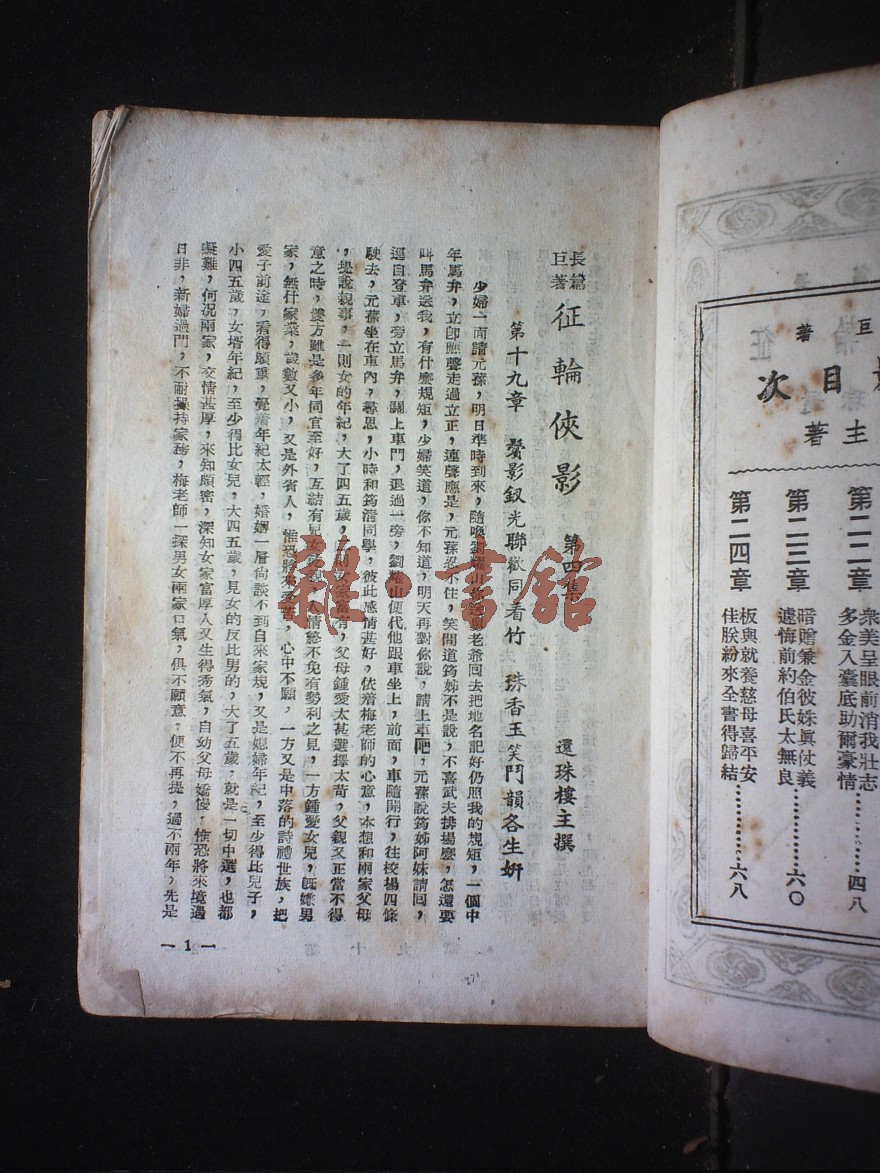 長篇
巨著
征輪俠影
第四集
還珠樓主撰
第十九章 鬢影釵光聯歡同看竹 珠香玉笑鬥韻各生妍
少婦一面請元蓀，明日準時到來，隨喚劉耀山你送東老爺回去把地名記好仍照我的規矩，一個中
年馬弁，立卽應聲走過立正，連聲應是，元蓀忍不住，笑問道筠姊不是說，不喜武夫排場麼，怎還要
叫馬弁送我，有什麼規矩，少婦笑道，你不知道，明天再對你說，請上車吧，元蓀說筠姊阿妹請回，
逕自登車，旁立馬弁，關上車門，退過一旁，劉耀山便代他跟車坐上，前面，車隨開行，往校場四條
駛去，元蓀坐在車內，尋思，小時和筠清同學，彼此感情甚好，依着梅老師的心意，本想和兩家父母
，提說親事，一則女的年紀，大了四五歲，二則女家富有，父母鍾愛太甚選擇太苛，父親又正當不得
意之時，雙方雖是多年同宜至好，互詰有兒女，人情終不免有勢利之見，一方鍾愛女兒，旣嫌男
家，無什家業，歲數又小，又是外省人，惟恐將來受苦，心中不願，一方又是中落的詩禮世族，把
愛子前途，看得頗重，覺着年紀太輕，婚姻一層尚談不到自來家規，又是媳婦年紀，至少得比兒子，
小四五歲，女壻年紀，至少得比女兒，大四五歲，見女的反比男的，大了五歲，就是一切中選，也都
礙難，何況兩家，交情甚厚，來知頗密，深知女家富厚人又生得秀氣，自幼父母嬌慢，惟恐將來境遇
日非，新婦過門，不耐操持家務，梅老師一探男女兩家口氣，俱不願意，便不再提，過不兩年，先是
—1—
雜·書館
巨著
目次
主著
第二二章
衆美呈眼前消我壯志
多金入囊底助爾豪情
四八
第二三章
暗贈兼金彼姝眞仗義
遽悔前約伯氏太無良
六〇
第二四章
板輿就養慈母喜平安
佳朕紛來全書得歸結
六八